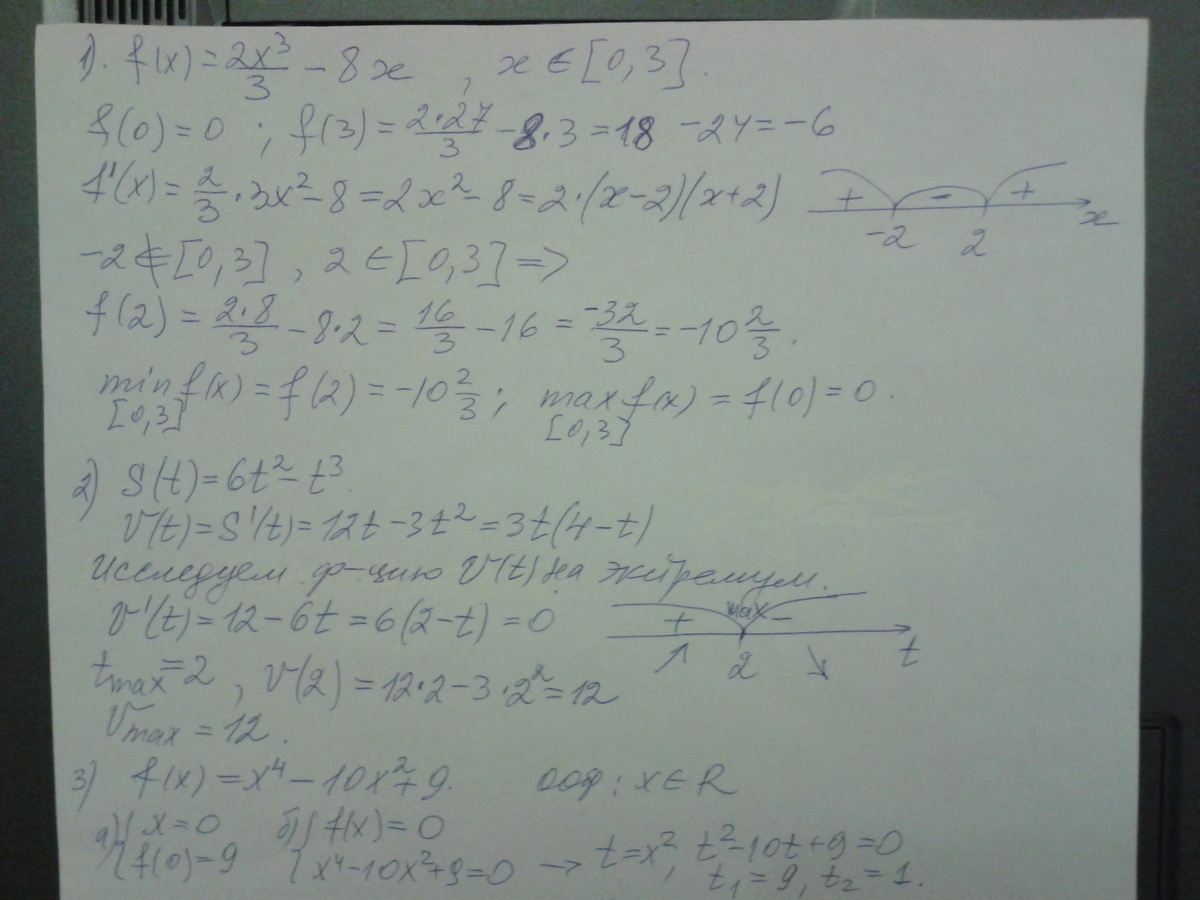 1). f(x) = 2x³/3 − 8x , x ∈ [0,3].
f(0) = 0 ; f(3) = 2·27/3 − 8·3 = 18 − 24 = −6
f'(x) = 2/3 · 3x² − 8 = 2x² − 8 = 2·(x−2)(x+2) + − + −2 2 x
−2 ∉ [0,3] , 2 ∈ [0,3] ⇒
f(2) = 2·8/3 − 8·2 = 16/3 − 16 = −32/3 = −10 2/3 .
min f(x) = f(2) = −10 2/3 ; max f(x) = f(0) = 0 .
[0,3] [0,3]
2) S(t) = 6t² − t³.
V(t) = S'(t) = 12t − 3t² = 3t(4−t)
Исследуем ф-цию V(t) на экстремум.
V'(t) = 12 − 6t = 6(2−t) = 0 + max − 2 t ↗ ↘
t max = 2 , V(2) = 12·2 − 3·2² = 12
V max = 12 .
3) f(x) = x⁴ − 10x² + 9. ООФ: x ∈ R
а) { x = 0 б) { f(x) = 0
{ f(0) = 9 { x⁴ − 10x² + 9 = 0 → t = x², t² − 10t + 9 = 0
t₁ = 9, t₂ = 1.